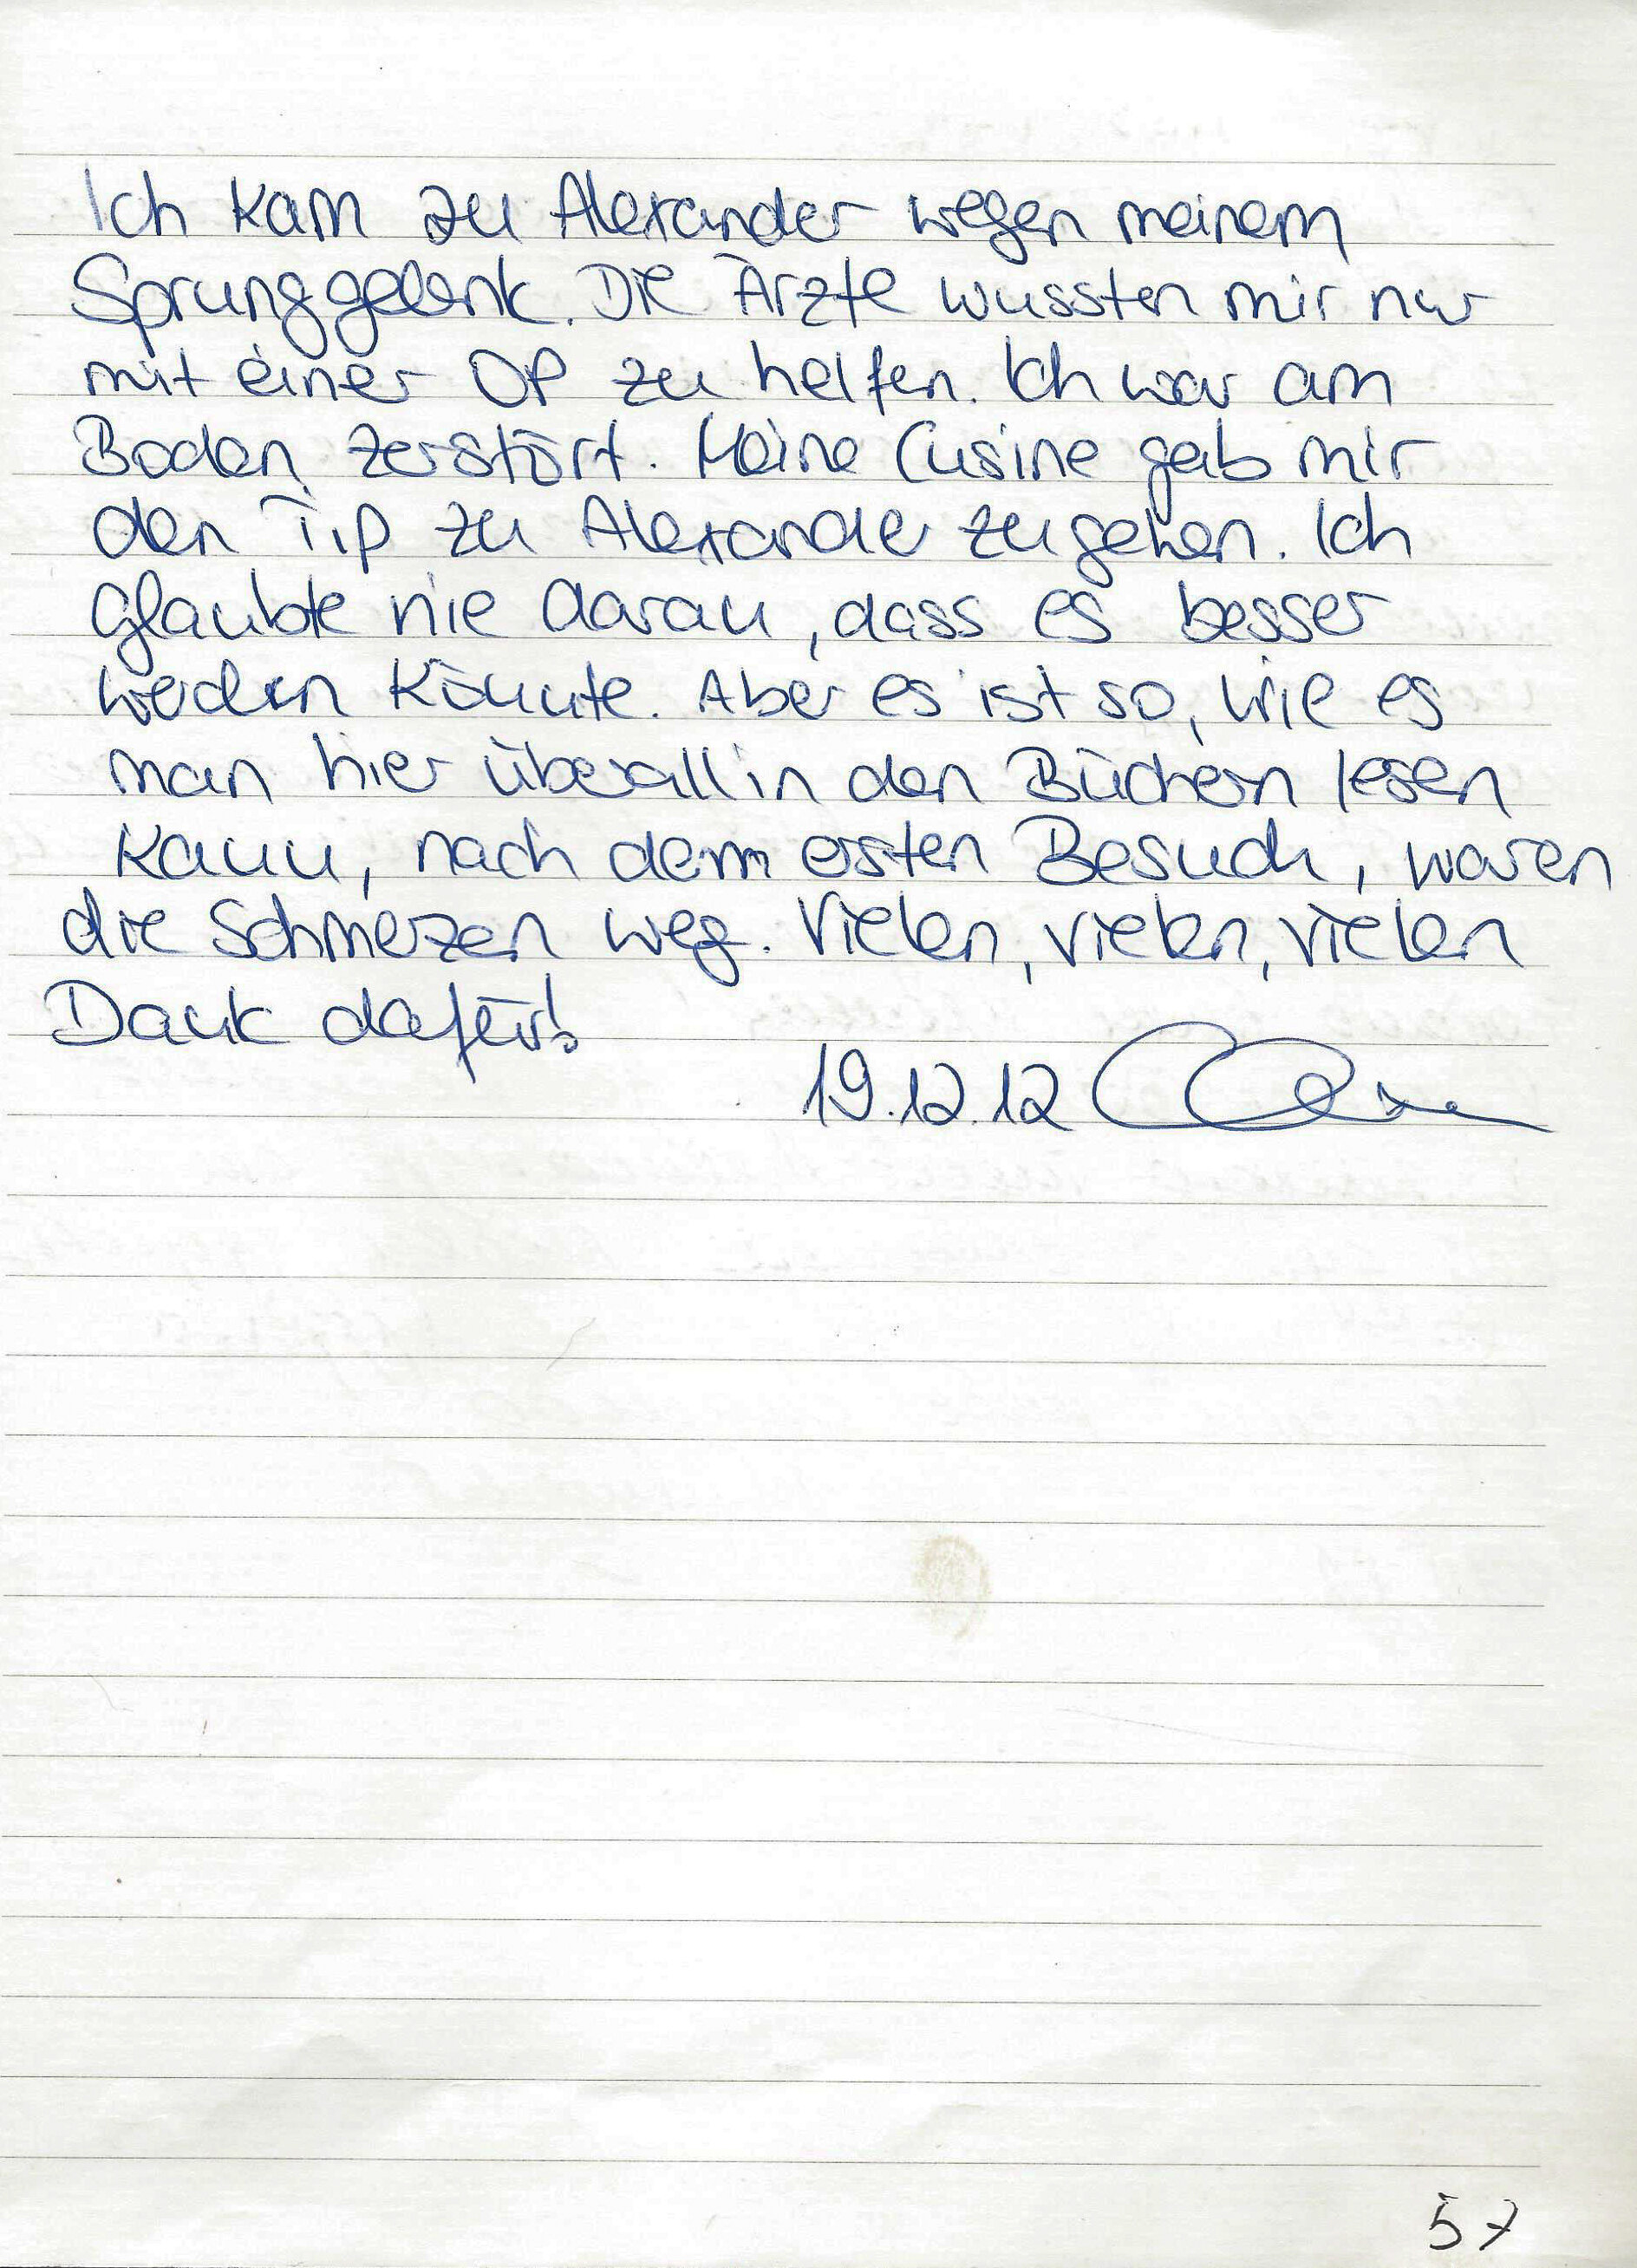 Ich kam zu Alexander wegen meinem
Sprunggelenk. Die Ärzte wussten mir nur
mit einer OP zu helfen. Ich war am
Boden zerstört. Meine Cusine gab mir
den Tip zu Alexander zugehen. Ich
glaubte nie daran, dass es besser
werden könnte. Aber es ist so, wie es
man hier überall in den Büchern lesen
kann, nach dem ersten Besuch, waren
die Schmerzen weg. Vielen, vielen, vielen
Dank dafür!
19.12.12
57